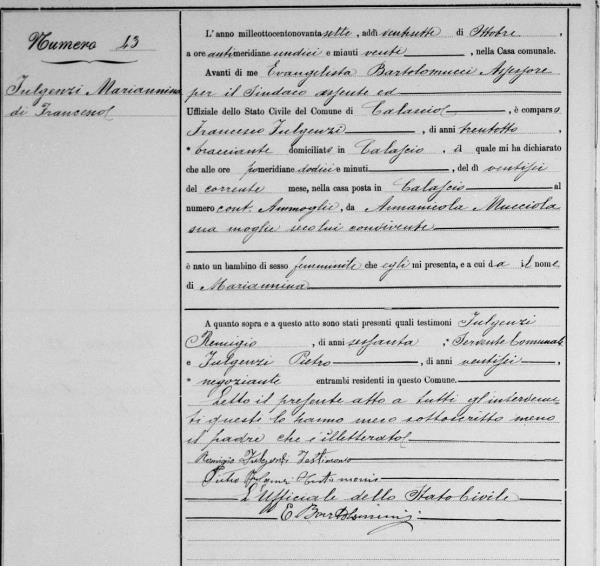 Numero 43
Fulgenzi Mariannina
di Francesco
L'anno milleottocentonovantasette, addì ventisette di Ottobre,
a ore antimeridiane undici e minuti venti, nella Casa comunale.
Avanti di me Evangelista Bartolomucci Assessore
per il Sindaco assente ed
Uffiziale dello Stato Civile del Comune di Calascio, è comparso
Francesco Fulgenzi, di anni trentotto,
bracciante domiciliato in Calascio, il quale mi ha dichiarato
che alle ore pomeridiane dodici e minuti, del dì ventisei
del corrente mese, nella casa posta in Calascio al
numero, da Annanicola Mucciola
sua moglie seco lui convivente
è nato un bambino di sesso femminile che egli mi presenta, e a cui dà il nome
di Mariannina
A quanto sopra e a questo atto sono stati presenti quali testimoni Fulgenzi
Remigio, di anni sessanta, Servente Comunale
e Fulgenzi Pietro, di anni ventisei,
negoziante entrambi residenti in questo Comune.
Letto il presente atto a tutti gl'intervenu
ti questi lo hanno meco sottoscritto meno
il padre che è illetterato
Remigio Fulgenzi Testimonio
Pietro Fulgenzi Testimonio
L'Ufficiale dello Stato Civile
E Bartolomucci